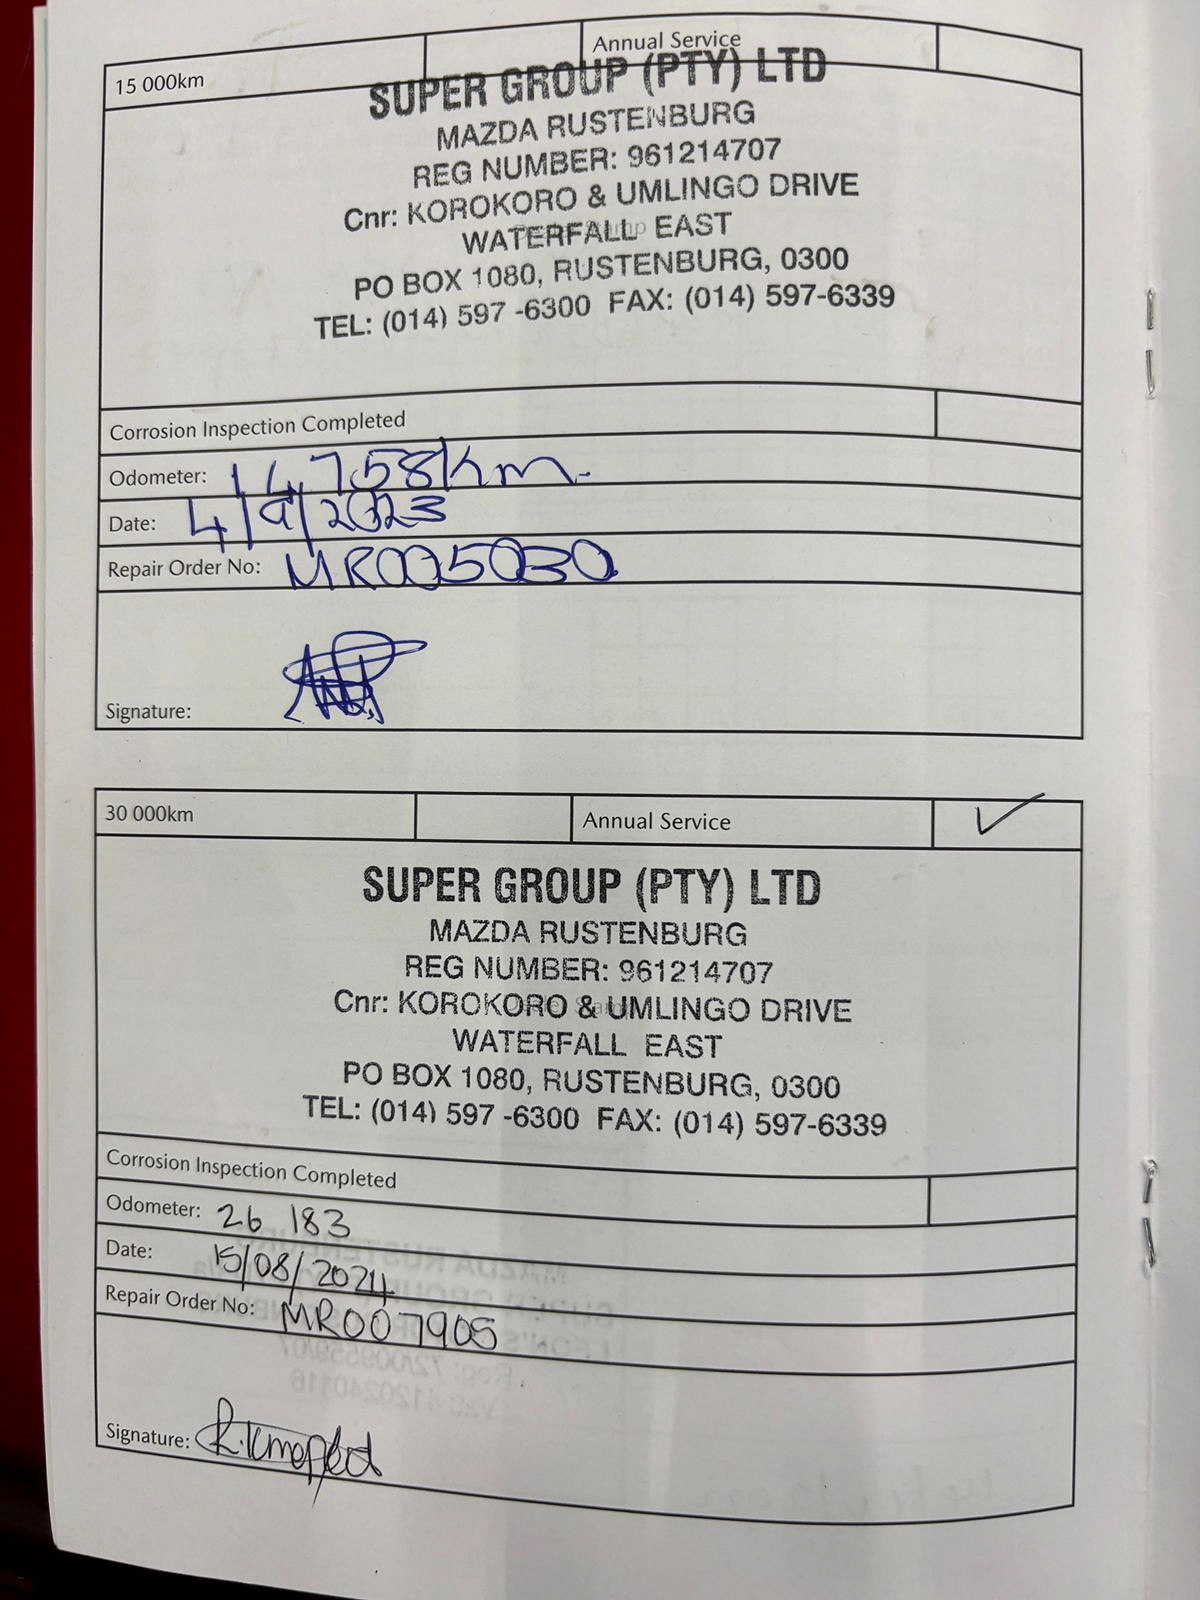 15 000km
Annual Service
SUPER GROUP (PTY) LTD
MAZDA RUSTENBURG
REG NUMBER: 961214707
Cnr: KOROKORO & UMLINGO DRIVE
WATERFALL EAST
PO BOX 1080, RUSTENBURG, 0300
TEL: (014) 597 -6300 FAX: (014) 597-6339
Corrosion Inspection Completed
Odometer: 14,758km
Date: 4/9/2023
Repair Order No: MR005030
Signature:
30 000km
Annual Service ✓
SUPER GROUP (PTY) LTD
MAZDA RUSTENBURG
REG NUMBER: 961214707
Cnr: KOROKORO & UMLINGO DRIVE
WATERFALL EAST
PO BOX 1080, RUSTENBURG, 0300
TEL: (014) 597 -6300 FAX: (014) 597-6339
Corrosion Inspection Completed
Odometer: 26 183
Date: 15/08/2024
Repair Order No: MR007905
Signature: